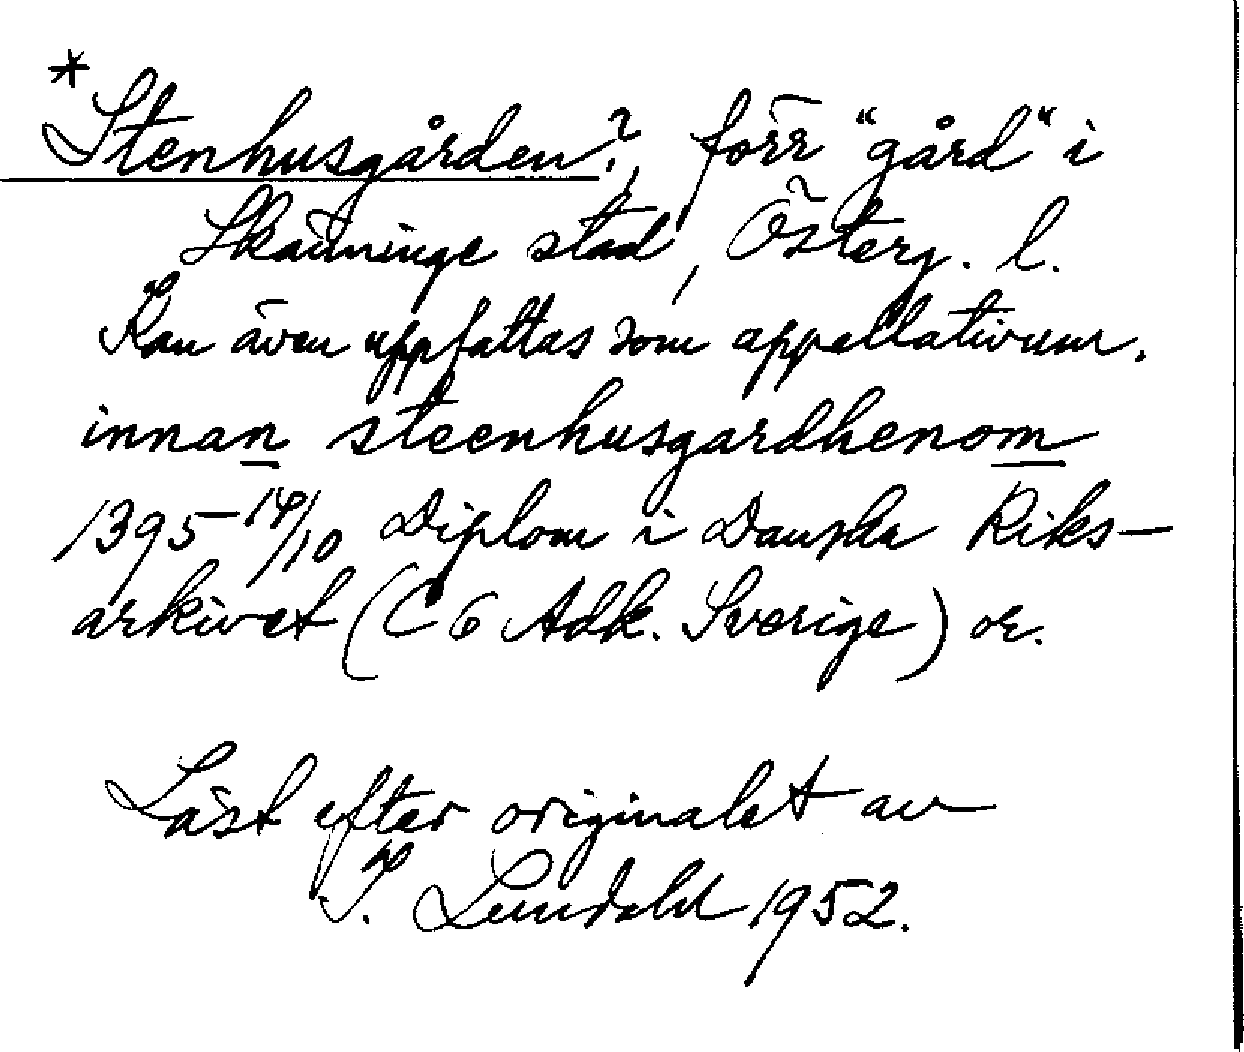 *Stenhusgården?, förr "gård" i
Skänninge stad, Österg. l.
Kan även uppfattas som appellativum.
innan steenhusgardhenom
1395 14/10 Diplom i Danska Riks-
arkivet (C6 Adk. Sverige) or.
Läst efter originalet av
I. Lundahl 1952.